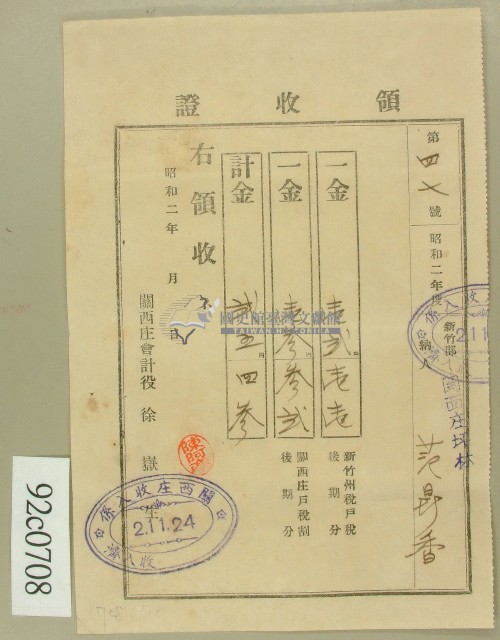 領收證
第四七號 昭和二年度
新竹郡 關西庄坪林
納人 范昻香
一金 壱弐壱壱
新竹州稅戶稅
後期分
一金 壱參參弐
關西庄戶稅割
後期分
計金 弐五四參
右領收ス
昭和二年 月 日
關西庄會計役 徐嶽生
關西庄收入係
2.11.24
收入濟
國史館臺灣文獻館
TAIWAN HISTORICA
92c0708